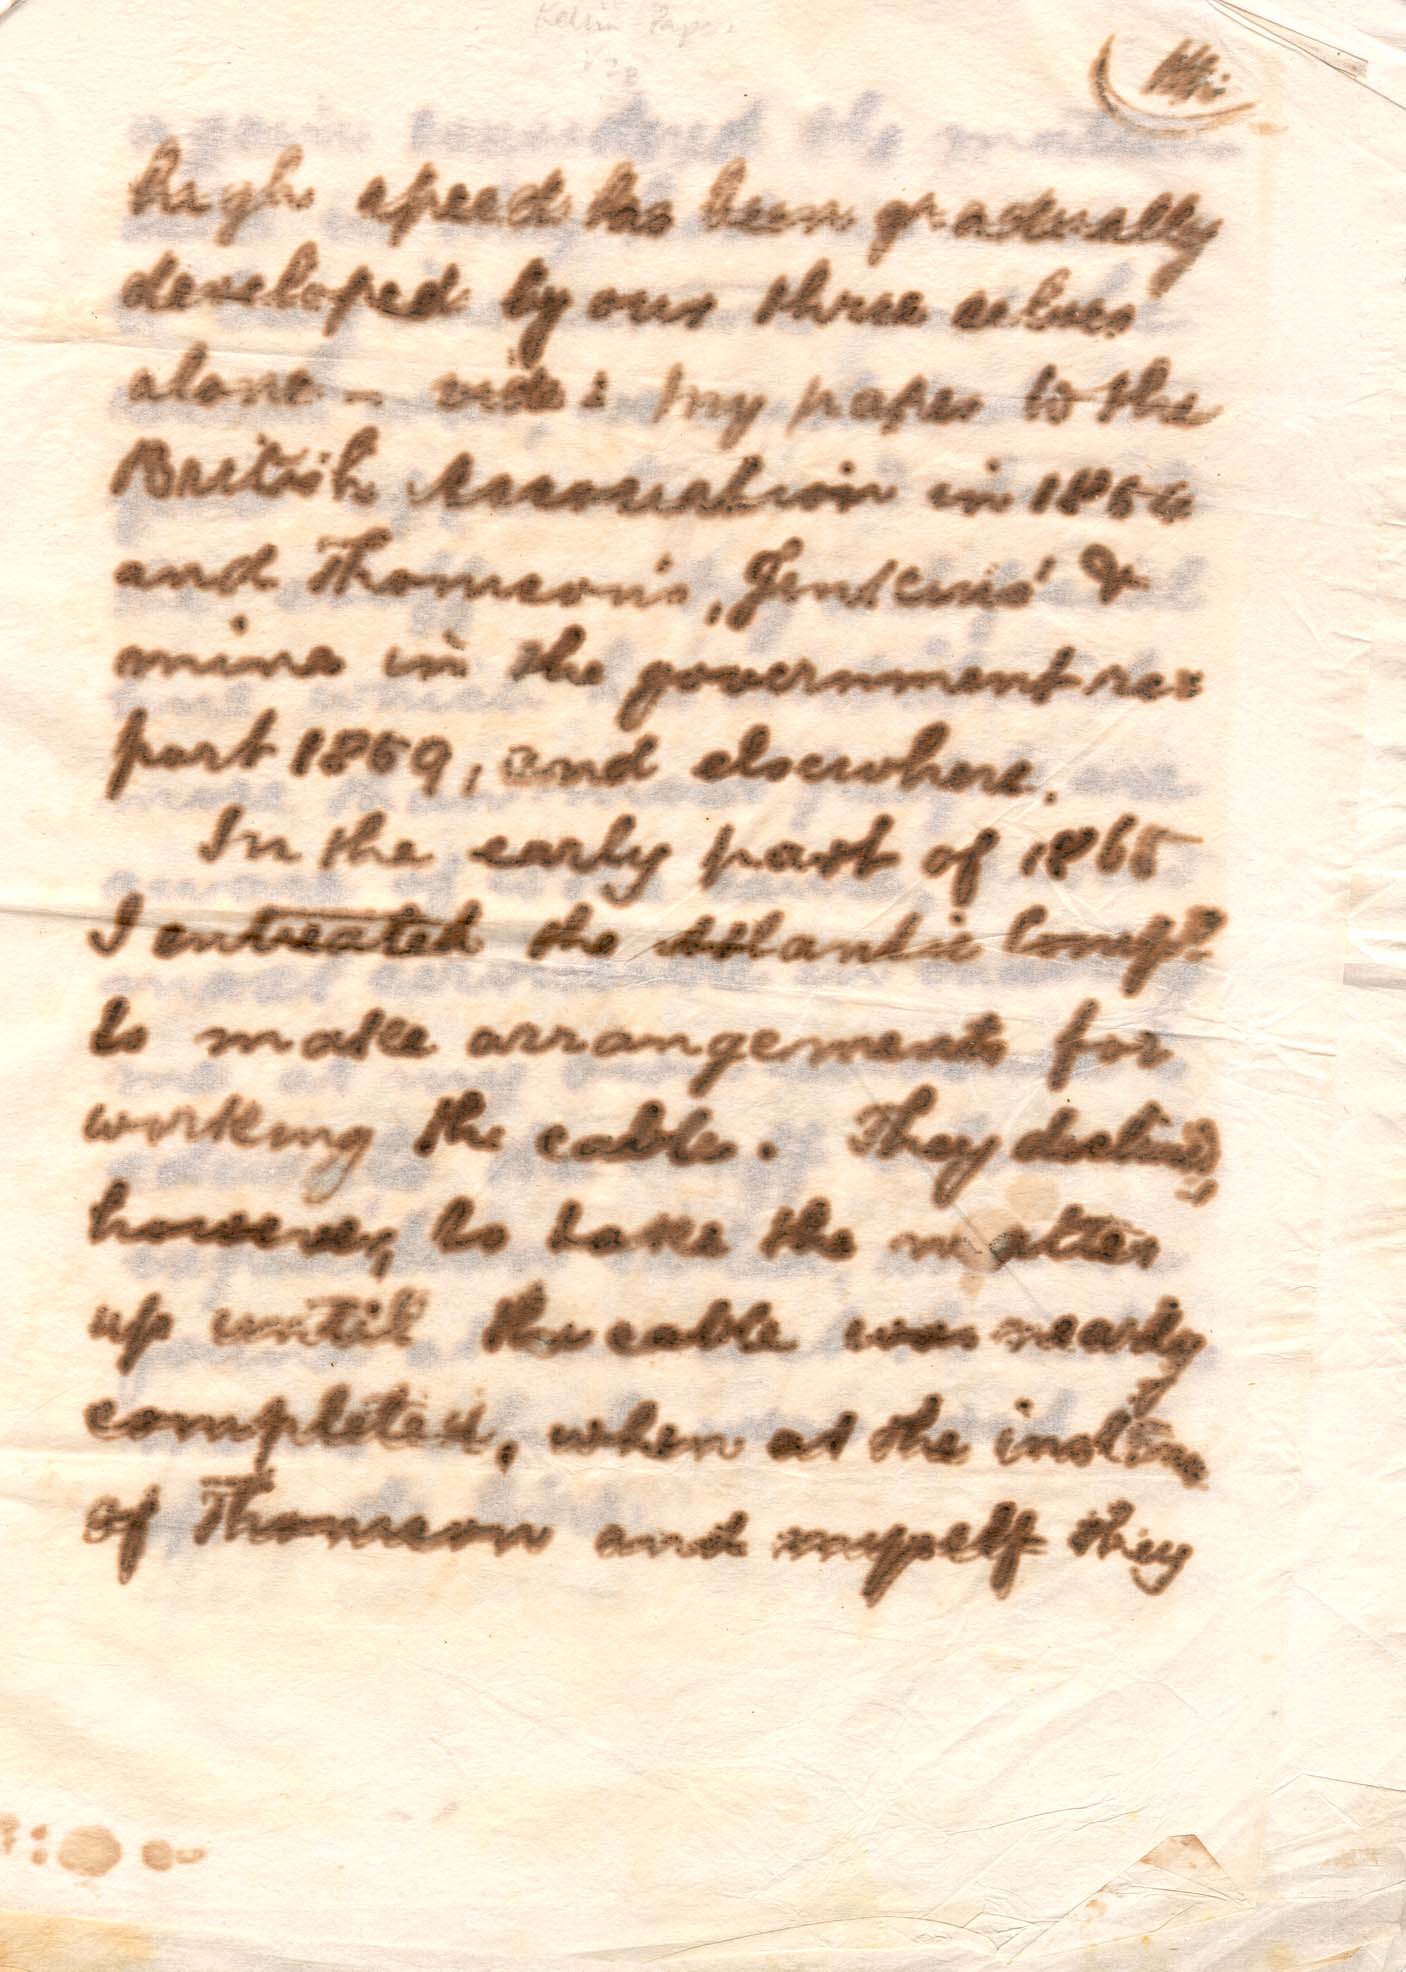 Kelvin Papers
V28
high speed has been gradually
developed by our three selves
alone – vide: my paper to the
British Association in 1854
and Thomson's, Jenkins' &
mine in the government re:
port 1859, and elsewhere.
In the early part of 1865
I entreated the Atlantic Compy.
to make arrangements for
working the cable. They declined
however, to take the matter
up until the cable was nearly
completed, when at the instance
of Thomson and myself they